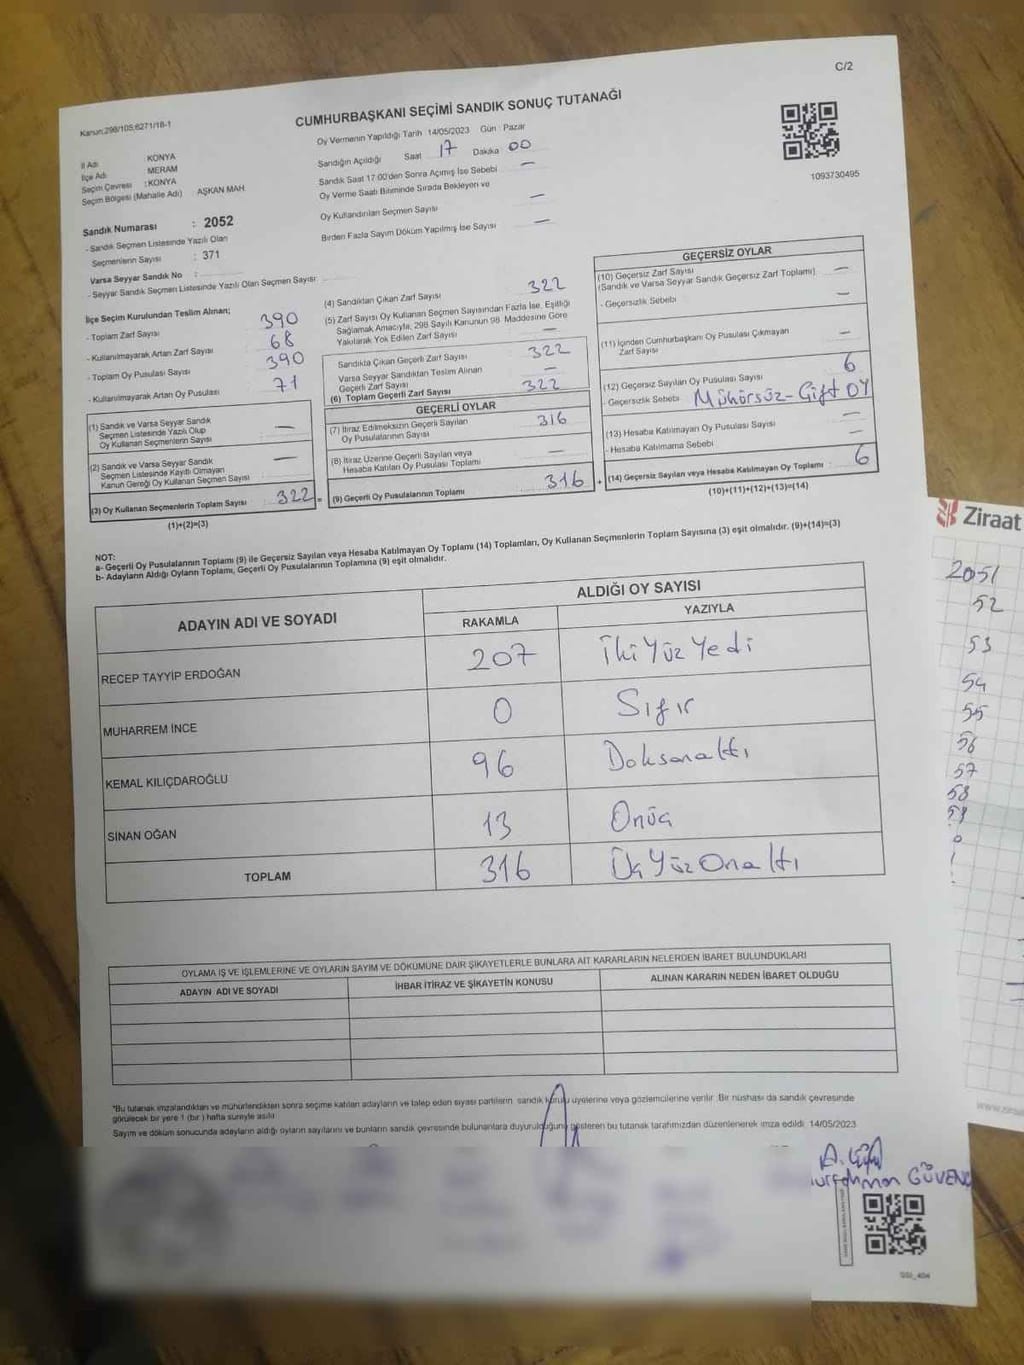 C/2
Kanun;298/105;6271/18-1
CUMHURBAŞKANI SEÇİMİ SANDIK SONUÇ TUTANAĞI
1093730495
İl Adı : KONYA
İlçe Adı : MERAM
Seçim Çevresi : KONYA
Seçim Bölgesi (Mahalle Adı) : AŞKAN MAH
Sandık Numarası : 2052
- Sandık Seçmen Listesinde Yazılı Olan
Seçmenlerin Sayısı : 371
Varsa Seyyar Sandık No :
- Seyyar Sandık Seçmen Listesinde Yazılı Olan Seçmen Sayısı:
Oy Vermenin Yapıldığı Tarih 14/05/2023 Gün : Pazar
Sandığın Açıldığı Saat 17 Dakika 00
Sandık Saat 17:00'den Sonra Açımış İse Sebebi —
Oy Verme Saati Bitiminde Sırada Bekleyen ve
Oy Kullandırılan Seçmen Sayısı —
Birden Fazla Sayım Döküm Yapılmış İse Sayısı —
İlçe Seçim Kurulundan Teslim Alınan;
- Toplam Zarf Sayısı 390
- Kullanılmayarak Artan Zarf Sayısı 68
- Toplam Oy Pusulası Sayısı 390
- Kullanılmayarak Artan Oy Pusulası 71
(1) Sandık ve Varsa Seyyar Sandık
Seçmen Listesinde Yazılı Olup
Oy Kullanan Seçmenlerin Sayısı —
(2) Sandık ve Varsa Seyyar Sandık
Seçmen Listesinde Kayıtlı Olmayan
Kanun Gereği Oy Kullanan Seçmen Sayısı —
(3) Oy Kullanan Seçmenlerin Toplam Sayısı : 322 =
(1)+(2)=(3)
(4) Sandıktan Çıkan Zarf Sayısı 322
(5) Zarf Sayısı Oy Kullanan Seçmen Sayısından Fazla İse, Eşitliği
Sağlamak Amacıyla, 298 Sayılı Kanunun 98. Maddesine Göre
Yakılarak Yok Edilen Zarf Sayısı —
Sandıkta Çıkan Geçerli Zarf Sayısı 322
Varsa Seyyar Sandıktan Teslim Alınan
Geçerli Zarf Sayısı —
(6) Toplam Geçerli Zarf Sayısı 322
GEÇERLİ OYLAR
(7) İtiraz Edilmeksizin Geçerli Sayılan
Oy Pusulalarının Sayısı 316
(8) İtiraz Üzerine Geçerli Sayılan veya
Hesaba Katılan Oy Pusulası Toplamı —
(9) Geçerli Oy Pusulalarının Toplamı 316 +
GEÇERSİZ OYLAR
(10) Geçersiz Zarf Sayısı —
(Sandık ve Varsa Seyyar Sandık Geçersiz Zarf Toplamı)
- Geçersizlik Sebebi —
(11) İçinden Cumhurbaşkanı Oy Pusulası Çıkmayan
Zarf Sayısı —
(12) Geçersiz Sayılan Oy Pusulası Sayısı 6
- Geçersizlik Sebebi Mühürsüz-Çift OY
(13) Hesaba Katılmayan Oy Pusulası Sayısı —
- Hesaba Katılmama Sebebi —
(14) Geçersiz Sayılan veya Hesaba Katılmayan Oy Toplamı : 6
(10)+(11)+(12)+(13)=(14)
NOT:
a- Geçerli Oy Pusulalarının Toplamı (9) ile Geçersiz Sayılan veya Hesaba Katılmayan Oy Toplamı (14) Toplamları, Oy Kullanan Seçmenlerin Toplam Sayısına (3) eşit olmalıdır. (9)+(14)=(3)
b- Adayların Aldığı Oyların Toplamı, Geçerli Oy Pusulalarının Toplamına (9) eşit olmalıdır.
ADAYIN ADI VE SOYADI
ALDIĞI OY SAYISI
RAKAMLA YAZIYLA
RECEP TAYYİP ERDOĞAN 207 İkiYüzYedi
MUHARREM İNCE 0 Sıfır
KEMAL KILIÇDAROĞLU 96 Doksanaltı
SİNAN OĞAN 13 Onüç
TOPLAM 316 ÜçYüzOnaltı
OYLAMA İŞ VE İŞLEMLERİNE VE OYLARIN SAYIM VE DÖKÜMÜNE DAİR ŞİKAYETLERLE BUNLARA AİT KARARLARIN NELERDEN İBARET BULUNDUKLARI
ADAYIN ADI VE SOYADI İHBAR İTİRAZ VE ŞİKAYETİN KONUSU ALINAN KARARIN NEDEN İBARET OLDUĞU
*Bu tutanak imzalandıktan ve mühürlendikten sonra seçime katılan adayların ve talep eden siyasi partilerin sandık kurulu üyelerine veya gözlemcilerine verilir. Bir nüshası da sandık çevresinde
görülecek bir yere 1 (bir) hafta süreyle asılır.
Sayım ve döküm sonucunda adayların aldığı oyların sayılarını ve bunların sandık çevresinde bulunanlara duyurulduğunu gösteren bu tutanak tarafımızdan düzenlenerek imza edildi. 14/05/2023
GÜVENÇ
SSI_404
Ziraat
2051
52
53
54
55
56
57
58
59